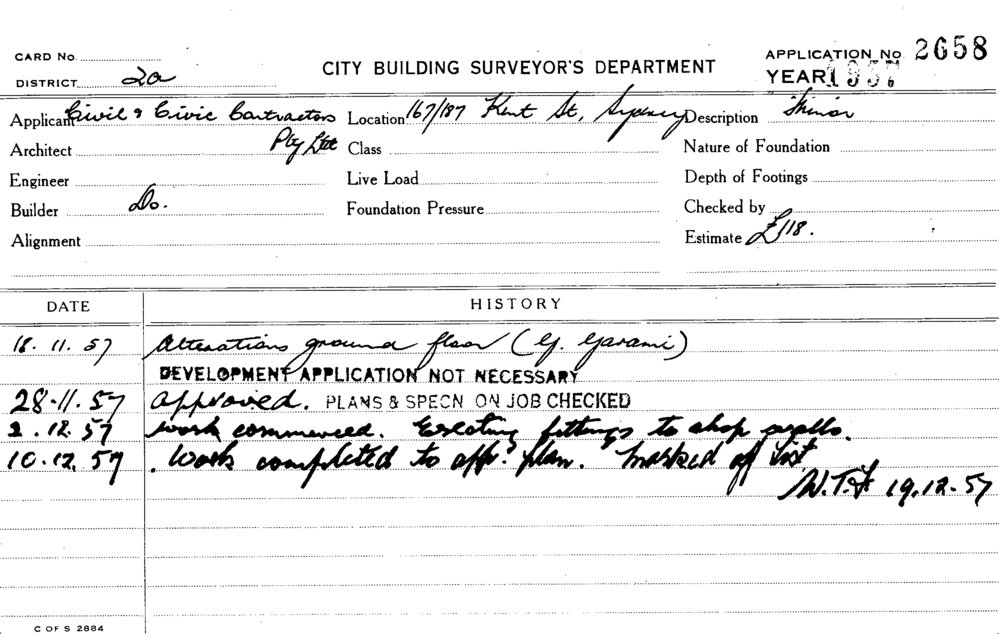 CARD No.
APPLICATION No. 2658
DISTRICT 2a
CITY BUILDING SURVEYOR'S DEPARTMENT
YEAR 1957
Applicant Civil & Civic Contractors Pty Ltd
Location 167/187 Kent St, Sydney
Description
Architect
Class
Nature of Foundation
Engineer
Live Load
Depth of Footings
Builder Do.
Foundation Pressure
Checked by
Alignment
Estimate £118.
DATE
HISTORY
18. 11. 57 Alterations ground floor (G. Garami)
DEVELOPMENT APPLICATION NOT NECESSARY
28-11-57 Approved. PLANS & SPECN ON JOB CHECKED
2.12.57 Work commenced. Erecting fittings to shop walls.
10.12.57. Work completed to app. plan. Marked off list
19.12.57
C OF S 2884